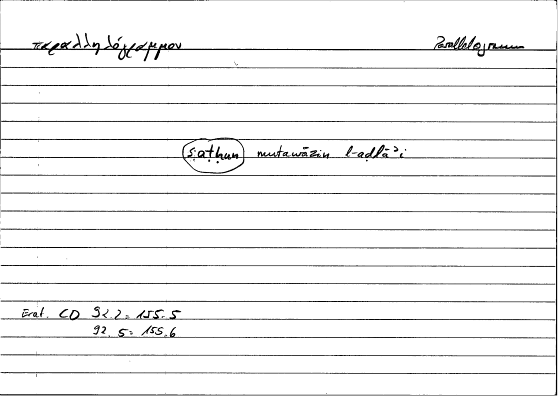 παραλληλόγραμμον Parallelogramm
saṭḥun mutawāzin l-aḍlāʾi
Erat. CD 92.2 = 155.5
92.5 = 155.6